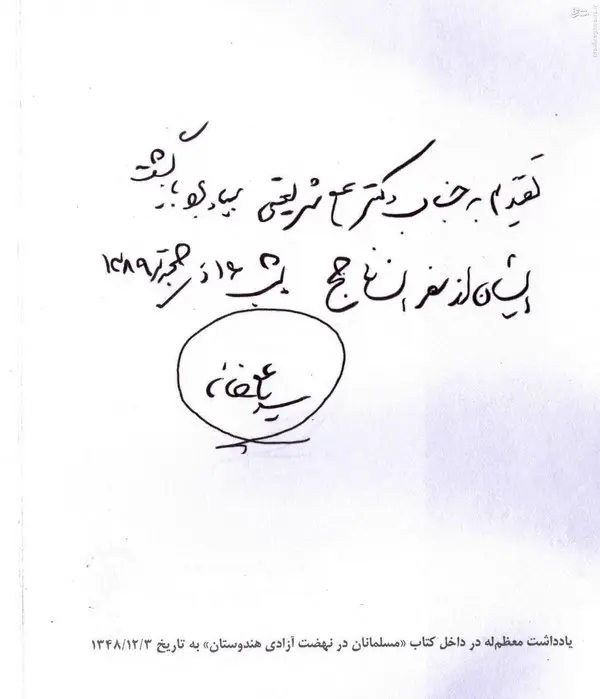 تقدیم به جناب دکتر علی شریعتی بیاد بود بازگشت
ایشان از سفر حج شب ۱۶ ذیحجه ۱۳۸۹
سید علی خامنه
یادداشت معظم‌له در داخل کتاب «مسلمانان در نهضت آزادی هندوستان» به تاریخ ۱۳۴۸/۱۲/۳